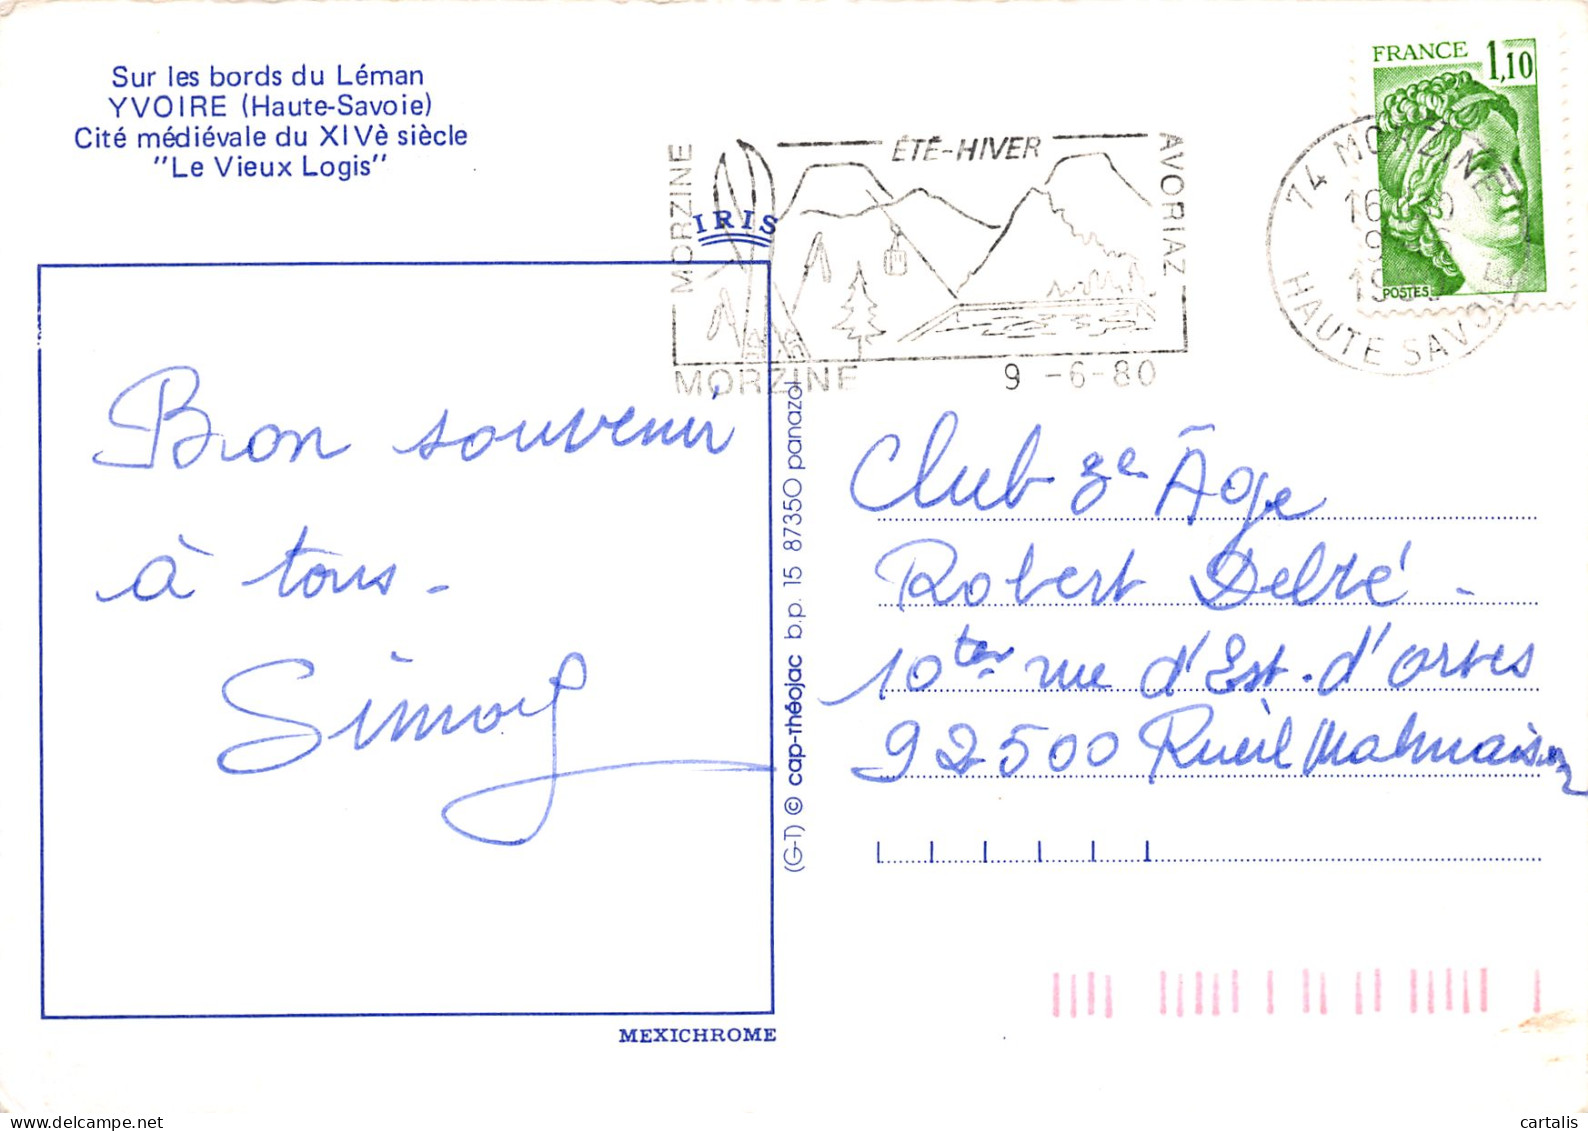 Sur les bords du Léman
YVOIRE (Haute-Savoie)
Cité médiévale du XIVè siècle
"Le Vieux Logis"
IRIS
MORZINE
ÉTÉ-HIVER
AVORIAZ
MORZINE
9 -6-80
FRANCE 1,10
POSTES
74 MORZINE
HAUTE SAVOIE
Bon souvenir
à tous -
(G-T) © cap-théojac b.p. 15 87350 panazol
Club 3e Âge
Robert Debré -
10 ter rue d'Est. d'orves
92500 Rueil Malmaison
MEXICHROME
cartalis